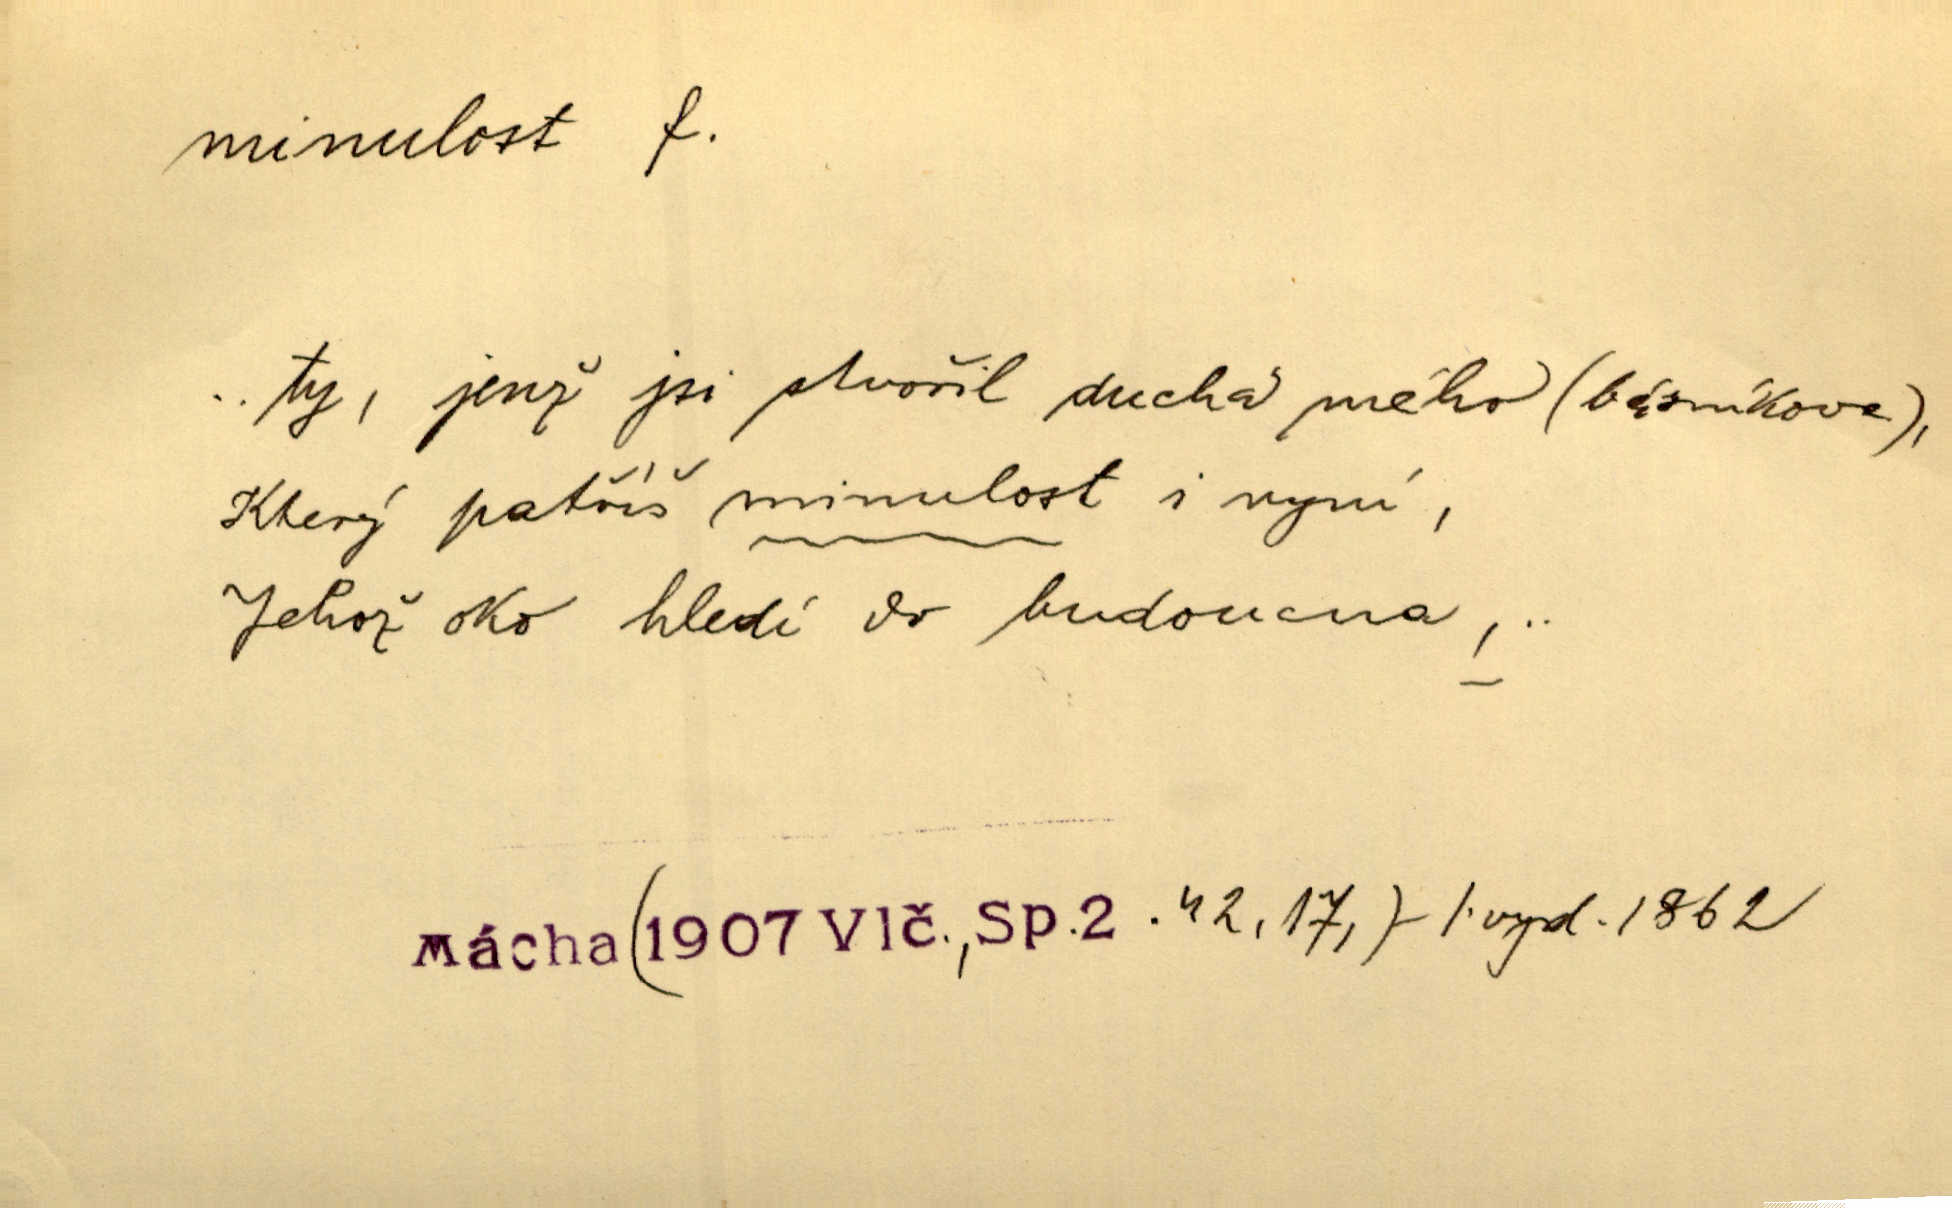 minulost f.
..ty, jenž jsi stvořil ducha mého (básníkova),
Který patříš minulost i nyní,
Jehož oko hledí do budoucna, ..
Mácha (1907 Vlč., Sp.2 . 42, 17,) - 1. vyd. 1862